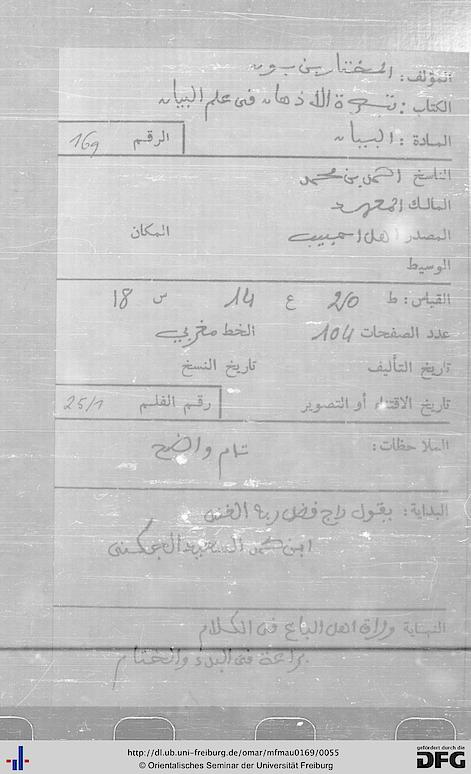 المؤلف: المختار بن بون
الكتاب: تبصرة الأذهان في علم البيان
المادة: البيان الرقم 169
الناسخ احمد بن محمد
المالك المعهد
المصدر اهل احبيب المكان
الوسيط
القياس: ط 20 ع 14 س 18
عدد الصفحات 104 الخط مغربي
تاريخ التأليف تاريخ النسخ
تاريخ الاقتناء أو التصوير رقم الفلم 25/1
الملاحظات: تام واضح
البداية: يقول راج فضل ربه الغنى
ابن محمد السعيد الجكنى
النهاية وراق اهل الباع فى الكلام
براعة فى البدء والختام
http://dl.ub.uni-freiburg.de/omar/mfmau0169/0055
© Orientalisches Seminar der Universität Freiburg
gefördert durch die
DFG